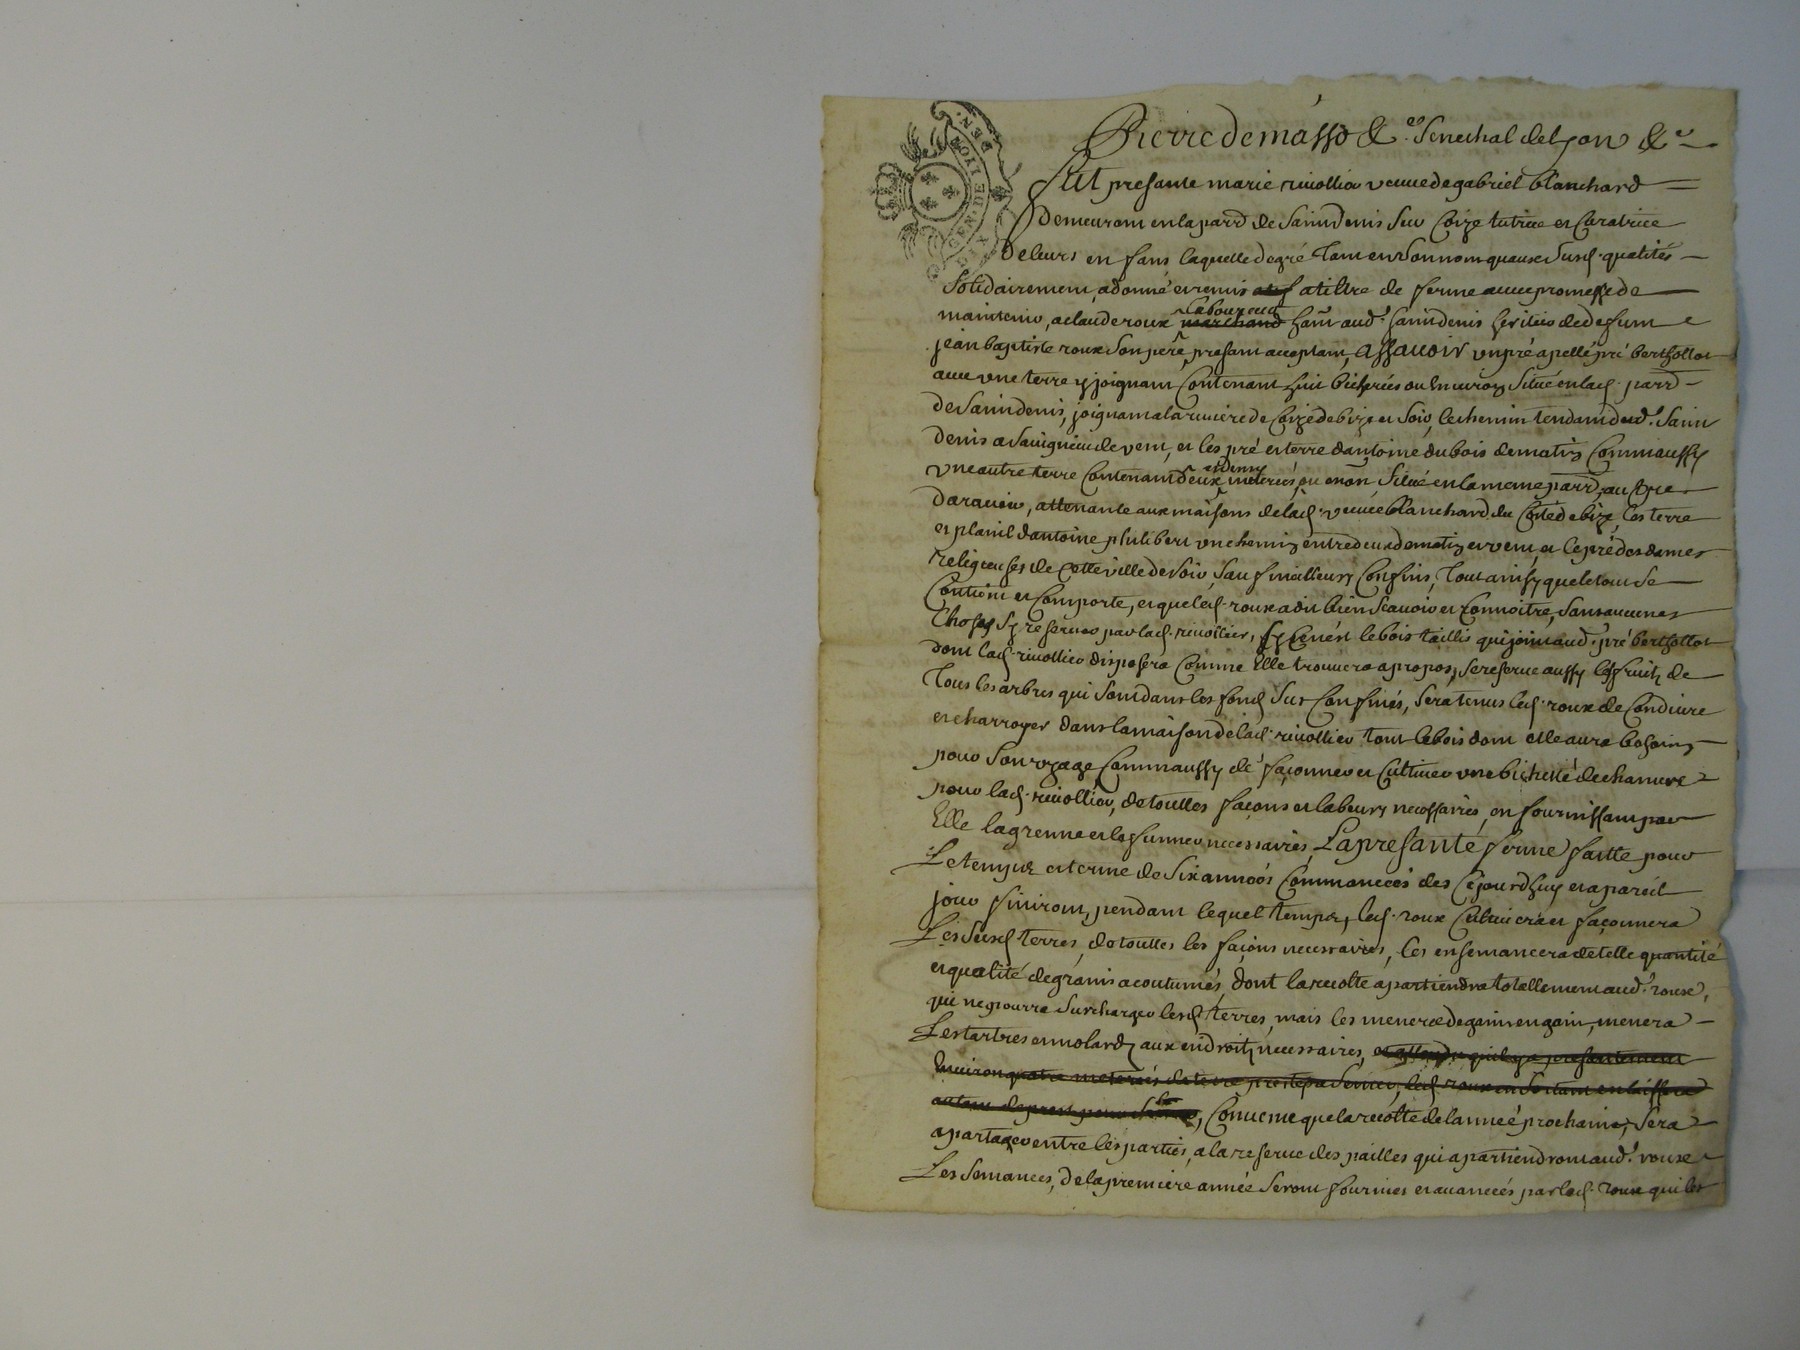 GEN. DE LYON
Pierre de masso &.ca Senechal de Lyon &.a
Fut presante marie riuollier veuue de gabriel blanchard
Demeurant en la parr.d de Saint Denis Sur Coize tutrice et Curatrice
De leurs enfans laquelle de gré Tant en Son nom quaux Susd. qualités
Solidairement, a donné et remis a tiltre de ferme auec promesse de
maintenir, a claude roux marchand laboureur hant aud. Saint denis heritier de deffunt
jean baptiste roux Son pere, presant acceptant, Assauoir un pré apellé pré berthollot
auec une terre y joignant Contenant huit bicherées ou enuiron Situé en lad. parr.d
De Saint denis, joignant a la riuiere de Coize de bize et Soir, le chemin tendant dud. Saint
Denis a Sauignieu de vent, et les pré et terre dantoine du bois de matin Comm aussy
vne autre terre Contenant Deux et demy meterées, ou enon Situé en la meme parr.d, au
Darauier, attenante aux maisons de lad. veuue blanchard du Coté de bize, Les terre
et planil dantoine philibert un chemin entre deux de matin et vent, et le pré des dames
religieuses de Cette ville de Soir, Sauf meilleurs Confins, Tout ainsy que le tout Se
Contient et Comporte, et que led. roux a dit bien Scauoir et Connoitre, Sans aucunes
Choses Sy reseruer par lad. riuollier, Sy Ce nest le bois taillis qui joint aud. pré berthollot
dont lad. riuollier disposera Comme Elle trouuera apropos, Se reserue aussy les fruits de
Tous les arbres qui Sont dans les fonds Sus Confinés, Sera tenus led. roux de Conduire
et charroyer dans la maison de lad. riuollier tout le bois dont elle aura besoing
pour Son vzage Comm aussy de façonner et Cultiuer vne bicherée de chanure
pour lad. riuollier, de touttes façons et labeurs necessaires, en fournissant par
Elle la grenne et le fumier necessaires, La presante ferme faitte pour
Le temps et terme de Six années Commancées des Cejourdhuy et a pareil
jour finiront, pendant lequel temps, led. roux Cultiuera et façonnera
Les Susd. terres, de touttes les façons necessaires, les ensemancera de telle quantité
et qualité de grains acoutumés, dont la recolte apartiendra totallement aud. roux,
qui ne pourra Surcharger lesd. terres, mais les menera de gain en gain, menera
Les tartres en molards aux endroits necessaires, et attendu quil y a presantement
Enuiron quatre meterées de terre preste a Semer, led. roux en Sortant en laissera
autant de prest pour Semer, Conuenu que la recolte de lannée prochaine, Sera
a partager entre les parties, a la reserue des pailles qui apartiendront aud. roux
Les Semances, De la premiere année Seront fournies et auancées par led. roux qui les